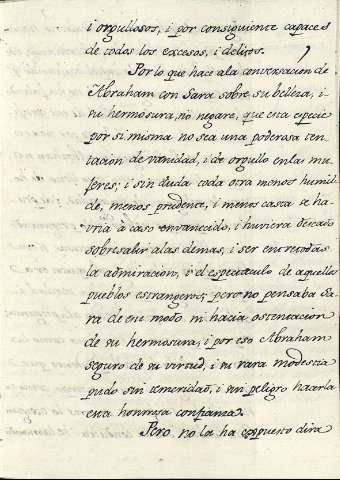 i orgullosos, i por consiguiente capaces
de todos los excesos, i delitos.
Por lo que hace a la conversacion de
Abraham con Sara sobre su belleza, i
su hermosura, no negare, que esta especie
por si misma no sea una poderosa ten-
tacion de vanidad, i de orgullo en las mu-
jeres; i sin duda toda otra menos humil-
de, menos prudente, i menos casta se ha-
vria à caso envanecido, i huviera deseado
sobresalir a las demas, i ser entre todas
la admiracion, i el espectaculo de aquellos
pueblos estrangeros; pero no pensaba Sa-
ra de este modo ni hacia ostentacion
de su hermosura, i por eso Abraham
seguro de su virtud, i su rara modestia
pudo sin temeridad, i sin peligro hacerla
esta honrosa confianza.
Pero no la ha expuesto dirà